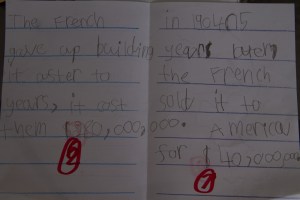 The French
gave up building
it after 10
years, it cost
them 20,000,000.
8
in 90405
years later
the French
sold it to
America
for 40,000,000
7